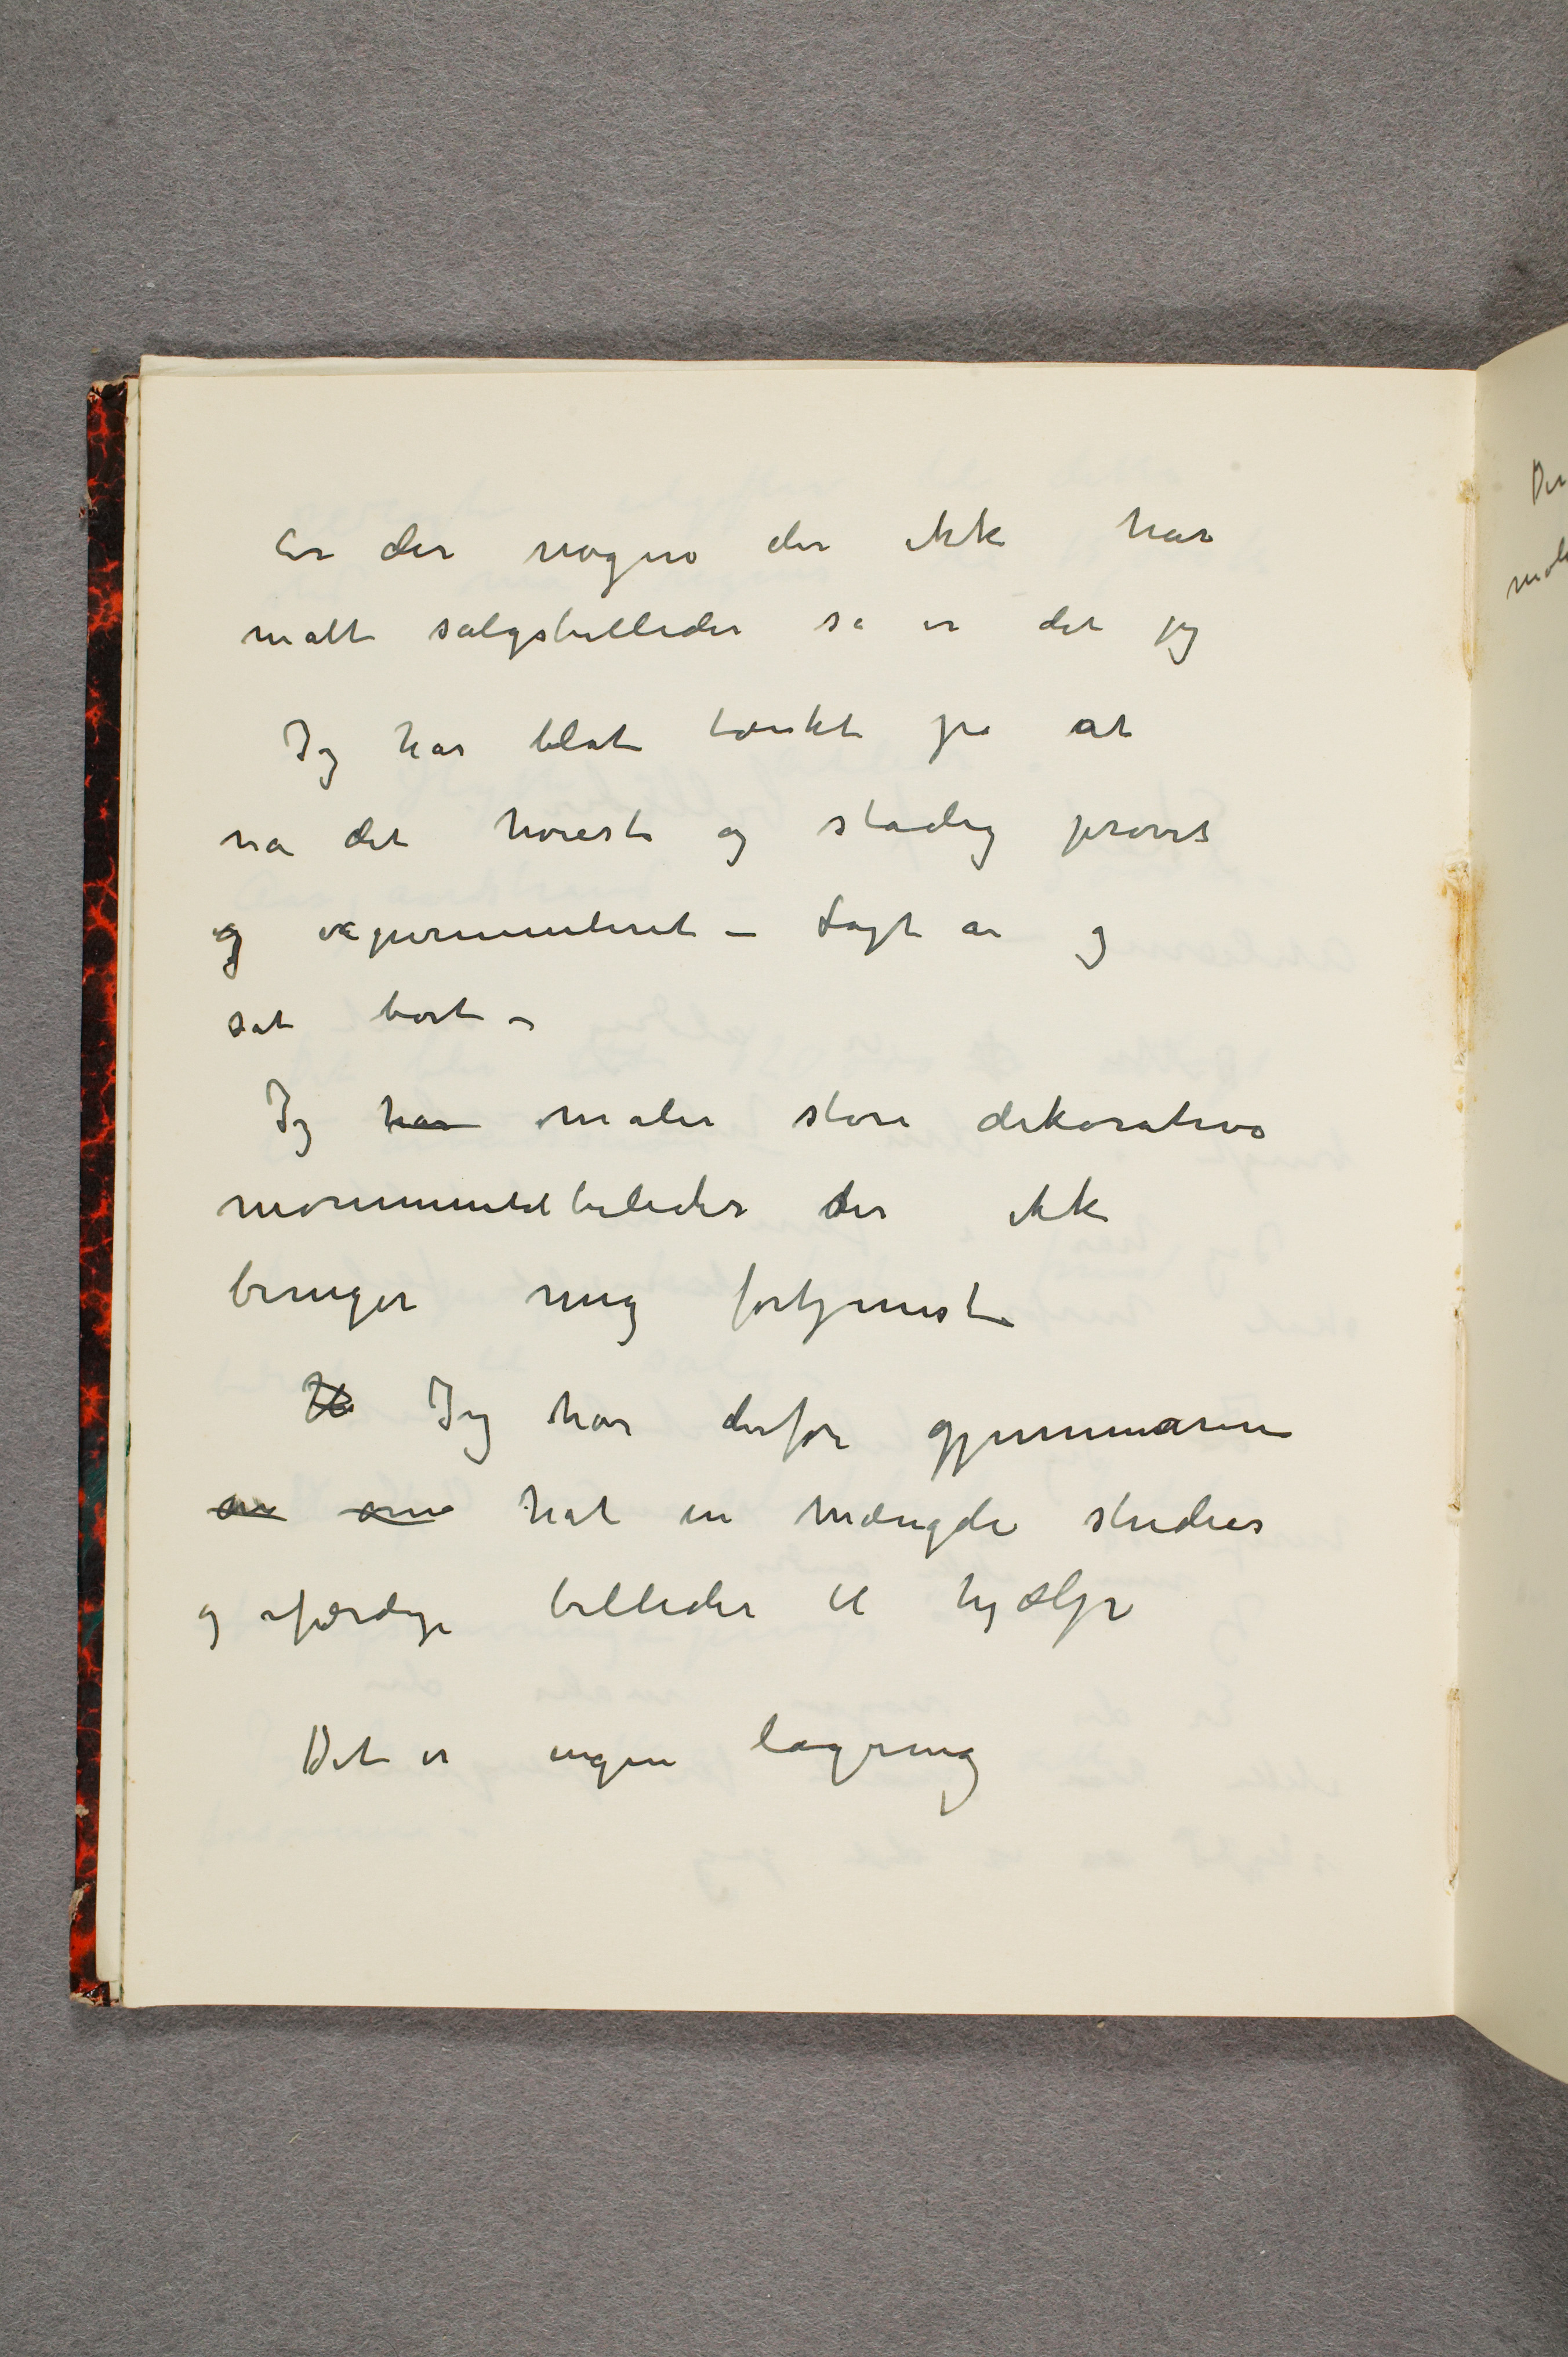 Er der nogen der ikke har
malt salgsbilleder så er det jeg
Jeg har blot tænkt på at
nå det høieste og stadig prøvet
og experimenteret – tagt an og
sat bort –
Jeg har maler store dekorative
monumentalbileder der ikke
bringer mig fortjeneste
Jeg har derfor gjennem årene
en om hat en mængde studier
og ufærdige billeder til hjælp
Det er ingen lagring